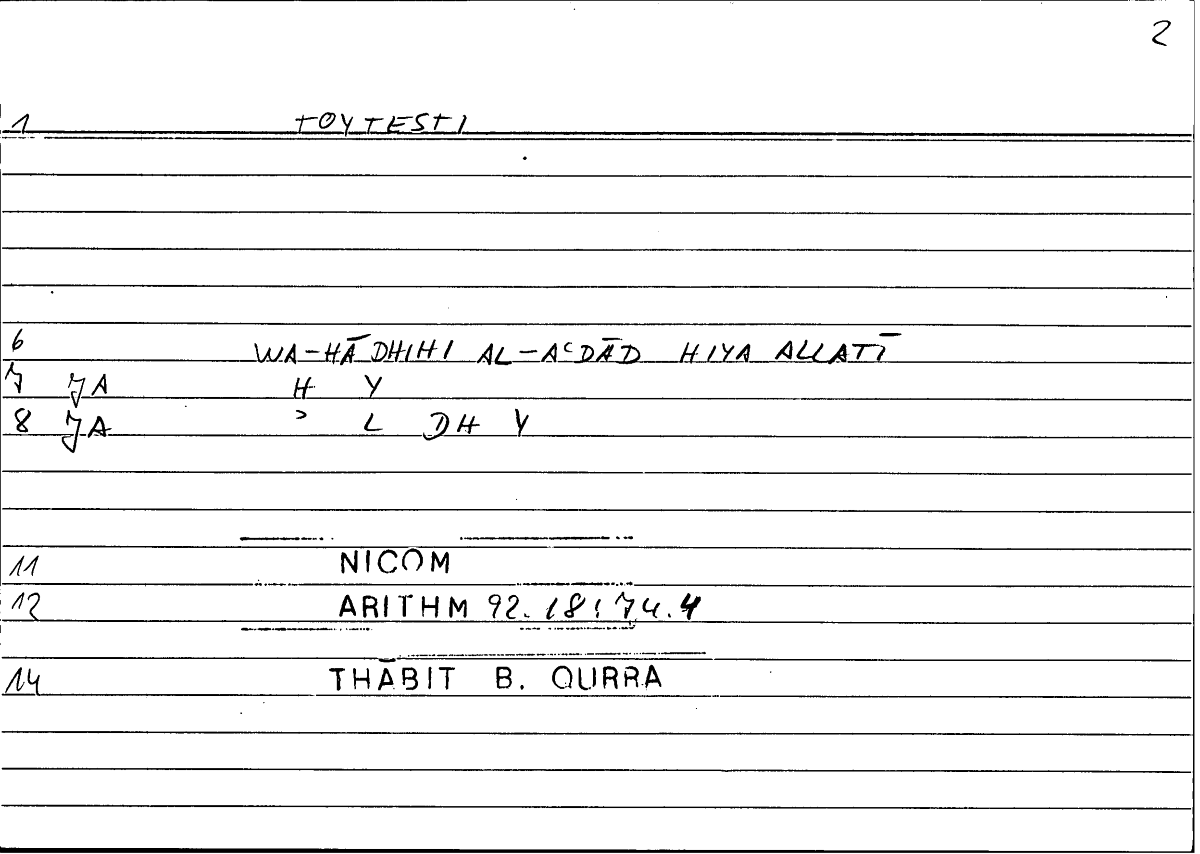 2
1 TOYTESTI
6 WA-HĀDHIHI AL-AʿDĀD HIYA ALLATĪ
7 JA H Y
8 JA ʾ L DH Y
11 NICOM
12 ARITHM 92.18; 74.4
14 THĀBIT B. QURRA